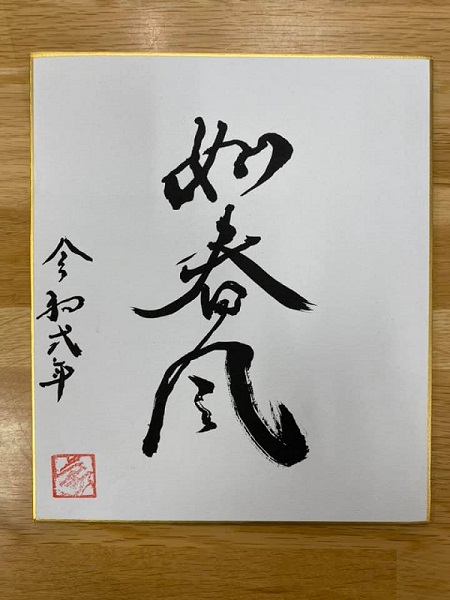 如春風
令和弐年